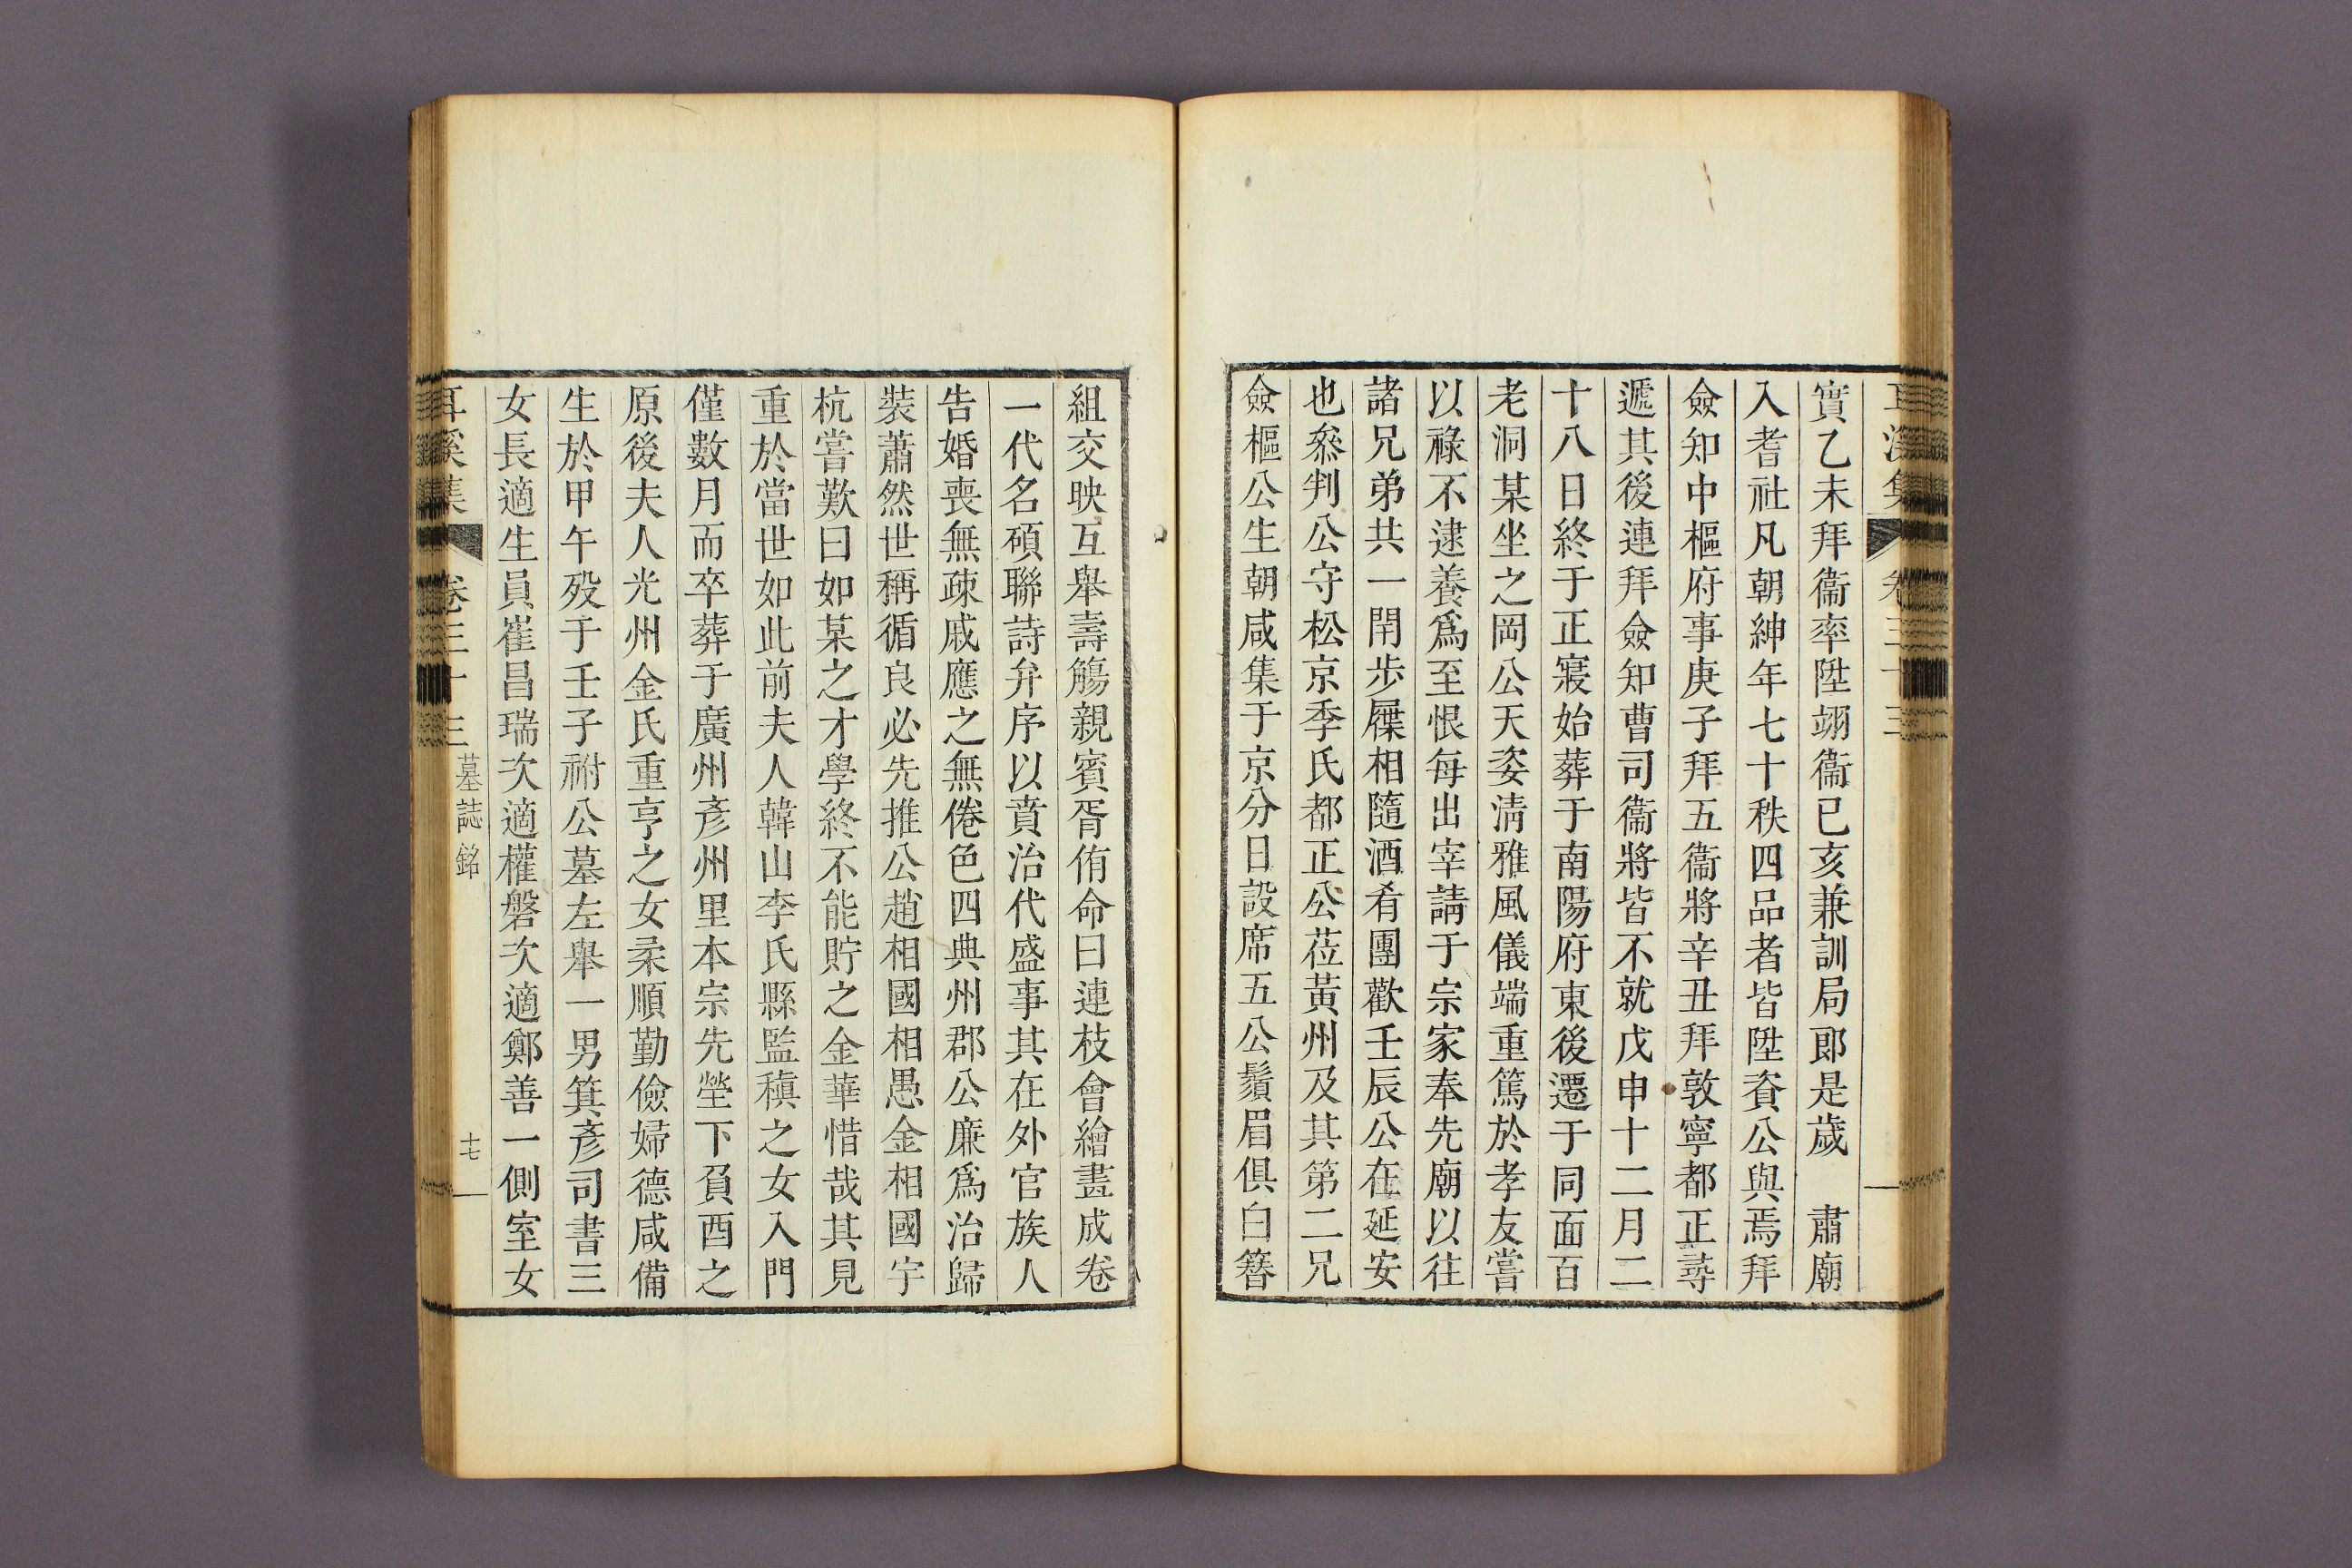 實乙未拜衞率陞翊衞已亥兼訓局郎是歲 肅廟
入耆社凡朝紳年七十秩四品者皆陞資公與焉拜
僉知中樞府事庚子拜五衞將辛丑拜敦寧都正尋
遞其後連拜僉知曹司衞將皆不就戊申十二月二
十八日終于正寢始葬于南陽府東後遷于同面百
老洞某坐之岡公天姿淸雅風儀端重篤於孝友嘗
以祿不逮養爲至恨每出宰請于宗家奉先廟以往
諸兄弟共一閈步屧相隨酒肴團歡壬辰公在延安
也叅判公守松京季氏都正公莅黃州及其第二兄
僉樞公生朝咸集于京分日設席五公鬚眉俱白簪
組交映互舉壽觴親賓胥侑命曰連枝會繪畫成卷
一代名碩聯詩弁序以賁治代盛事其在外官族人
告婚喪無疎戚應之無倦色四典州郡公廉爲治歸
裝蕭然世稱循良必先推公趙相國相愚金相國宇
杭嘗歎曰如某之才學終不能貯之金華惜哉其見
重於當世如此前夫人韓山李氏縣監稹之女入門
僅數月而卒葬于廣州彥州里本宗先塋下負酉之
原後夫人光州金氏重亨之女柔順勤儉婦德咸備
生於甲午歿于壬子祔公墓左舉一男箕彥司書三
女長適生員崔昌瑞次適權磐次適鄭善一側室女
耳溪集 卷三十三 墓誌銘 十七